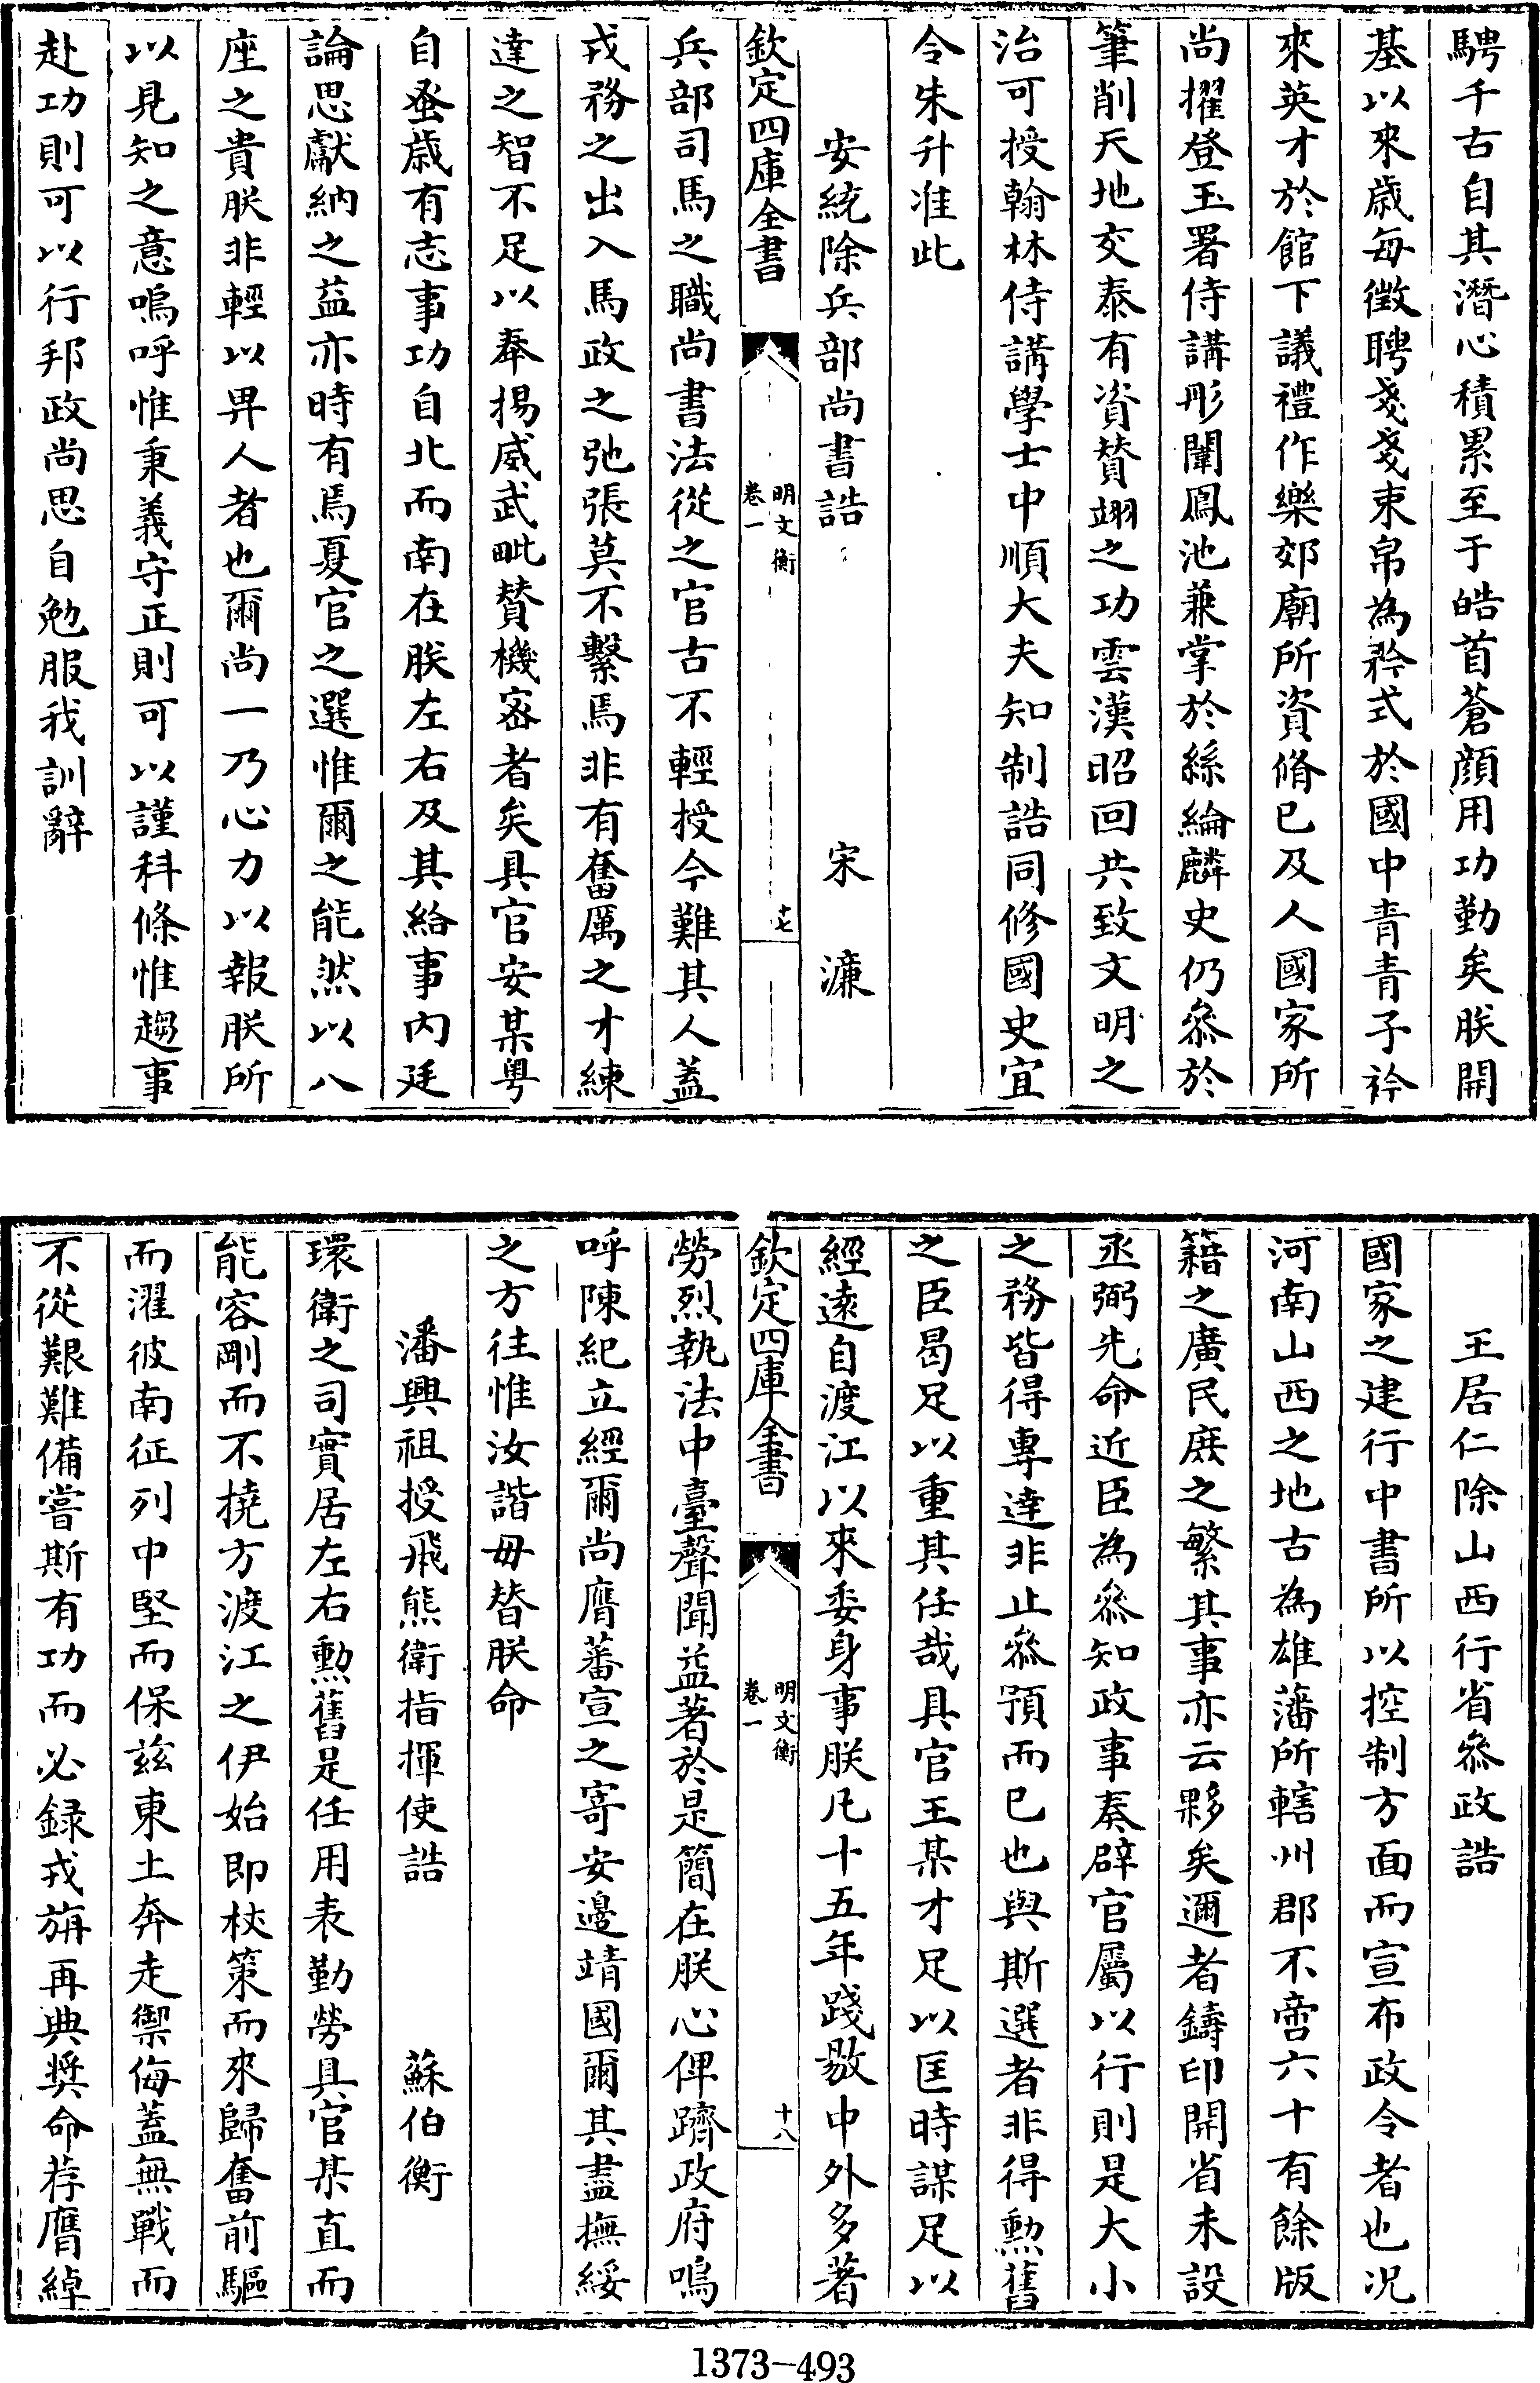 騁千古自其潛心積累至于皓首蒼顔用功勤矣朕開
基以來歳每徴聘戔戔束帛為矜式於國中青青子衿
來英才於館下議禮作樂郊廟所資脩已及人國家所
尚擢登玉署侍講彤闈鳳池兼掌於絲綸麟史仍叅於
筆削天地交泰有資賛翊之功雲漢昭回共致文明之
治可授翰林侍講學士中順大夫知制誥同修國史宜
令朱升准此
安統除兵部尚書誥 宋濂
欽定四庫全書 明文衡 卷一 十七
兵部司馬之職尚書法從之官古不輕授今難其人蓋
戎務之出入馬政之弛張莫不繫焉非有奮厲之才練
達之智不足以奉揚威武毗賛機宻者矣具官安某粤
自蚤歳有志事功自北而南在朕左右及其給事内廷
論思獻納之益亦時有焉夏官之選惟爾之能然以八
座之貴朕非輕以畀人者也爾尚一乃心力以報朕所
以見知之意嗚呼惟秉義守正則可以謹科條惟趨事
赴功則可以行邦政尚思自勉服我訓辭
王居仁除山西行省叅政誥
國家之建行中書所以控制方面而宣布政令者也况
河南山西之地古為雄藩所轄州郡不啻六十有餘版
籍之廣民庶之繁其事亦云夥矣邇者鑄印開省未設
丞弼先命近臣為叅知政事奏辟官屬以行則是大小
之務皆得專達非止叅預而已也與斯選者非得勲舊
之臣曷足以重其任哉具官王某才足以匡時謀足以
經遠自渡江以來委身事朕凡十五年踐敭中外多著
欽定四庫全書 明文衡 卷一 十八
勞烈執法中臺聲聞益著於是簡在朕心俾躋政府嗚
呼陳紀立經爾尚膺蕃宣之寄安邊靖國爾其盡撫綏
之方往惟汝諧毋替朕命
潘興祖授飛熊衛指揮使誥 蘇伯衡
環衛之司實居左右勲舊是任用表勤勞具官某直而
能容剛而不撓方渡江之伊始即杖策而來歸奮前驅
而濯彼南征列中堅而保兹東土奔走禦侮蓋無戰而
不從艱難備嘗斯有功而必録戎旃再典奬命荐膺綽
1373-493